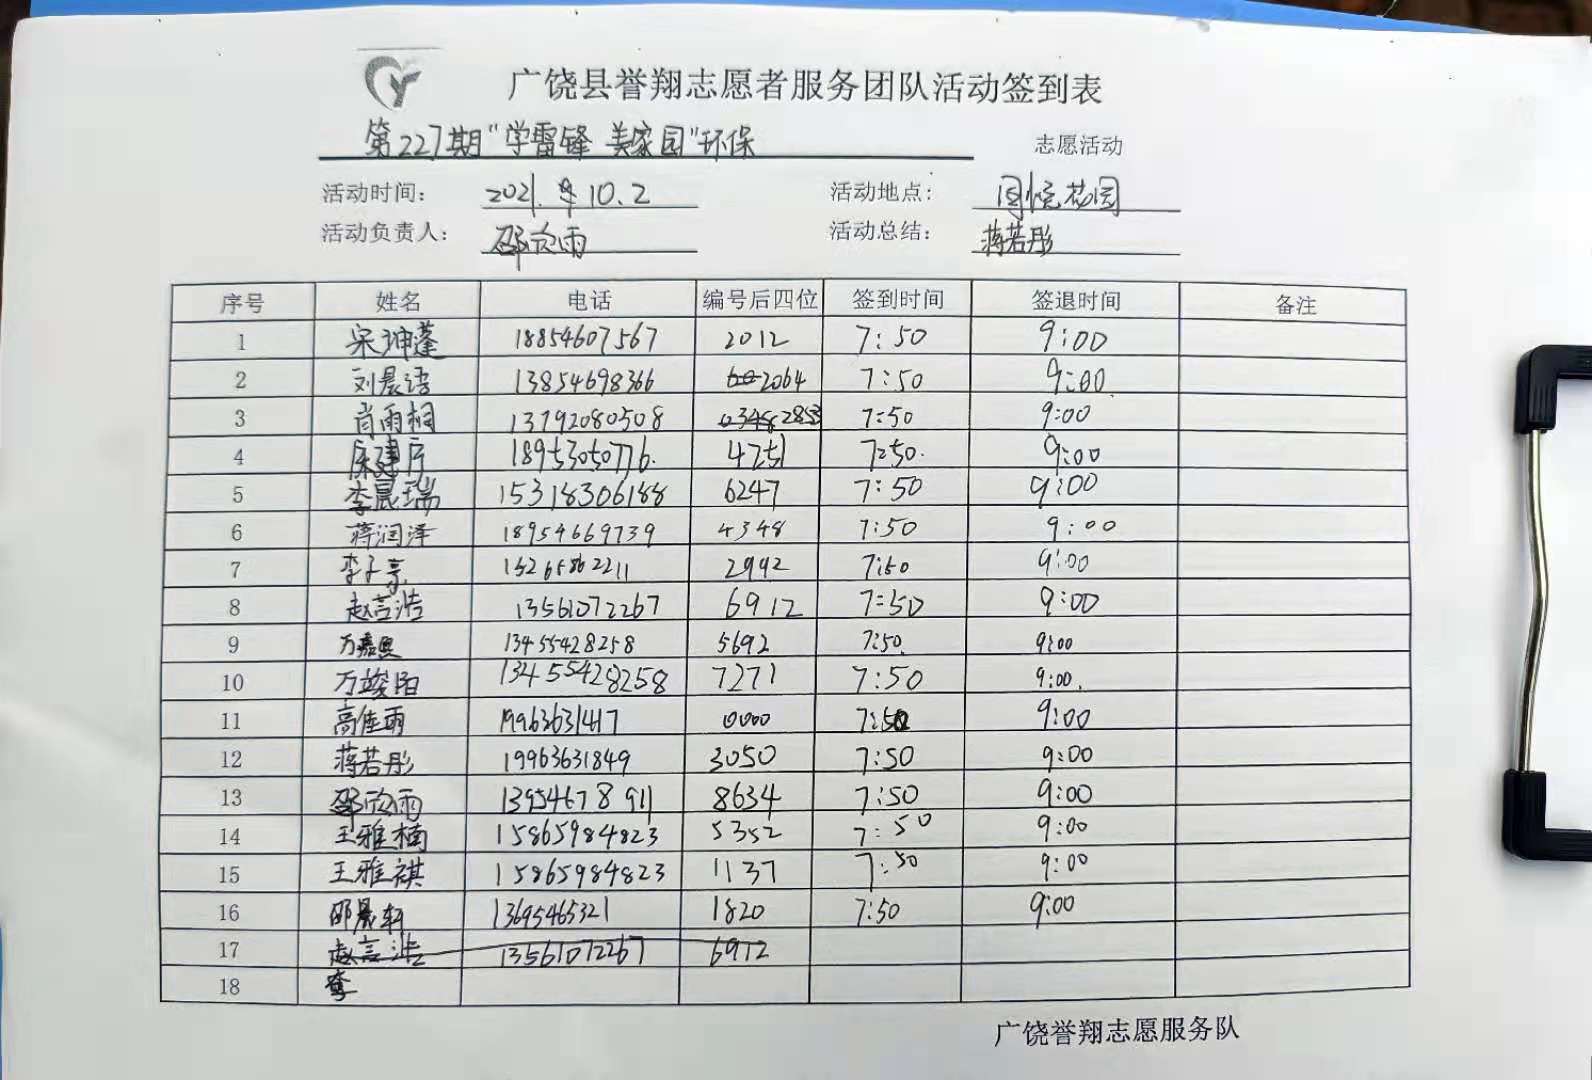 广饶县誉翔志愿者服务团队活动签到表
第227期"学雷锋 美家园"环保 志愿活动
活动时间： 2021. 10.2 活动地点： 花园
活动负责人： 邵欣雨 活动总结： 蒋若彤
序号 姓名 电话 编号后四位 签到时间 签退时间 备注
1 宋坤蓬 18854607567 2012 7:50 9:00
2 刘晨语 13854698366 2064 7:50 9:00
3 肖雨桐 13792080508 2853 7:50 9:00
4 18953050776. 4751 7:50. 9:00
5 李晨瑞 15318306188 6247 7:50 9:00
6 蒋润泽 18954669739 4348 7:50 9:00
7 李子豪 2992 7:50 9:00
8 赵言浩 13561072267 6912 7:50 9:00
9 万嘉 13455428258 5692 7:50. 9:00
10 万竣阳 13455428258 7271 7:50 9:00.
11 高佳雨 19963631417 0000 7:50 9:00
12 蒋若彤 19963631849 3050 7:50 9:00
13 邵欣雨 13954678911 8634 7:50 9:00
14 王雅楠 15865984823 5352 7:50 9:00
15 王雅祺 15865984823 1137 7:50 9:00
16 邵晨轩 13695465321 1820 7:50 9:00
17 赵言浩 13561072267 6912
18 李
广饶誉翔志愿服务队